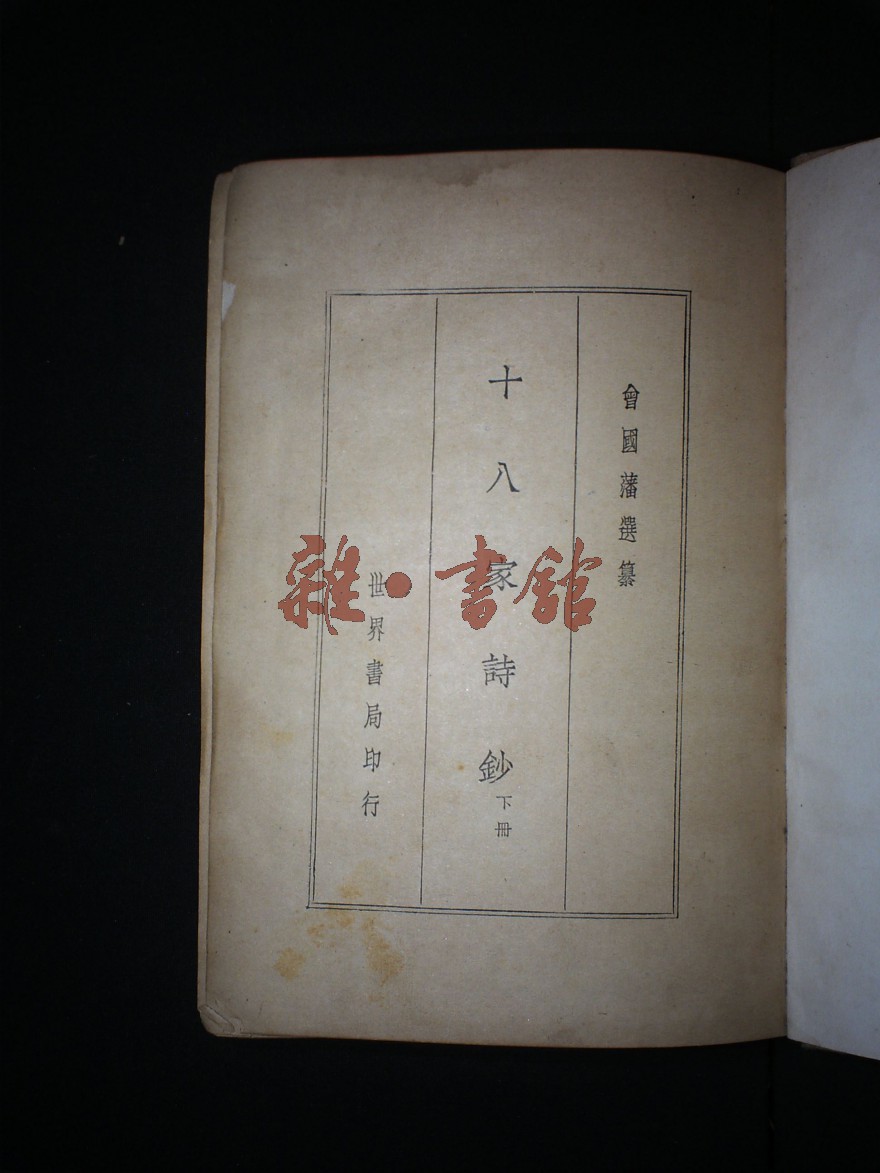 曾國藩選纂
十八家詩鈔
下冊
世界書局印行
雜·書館